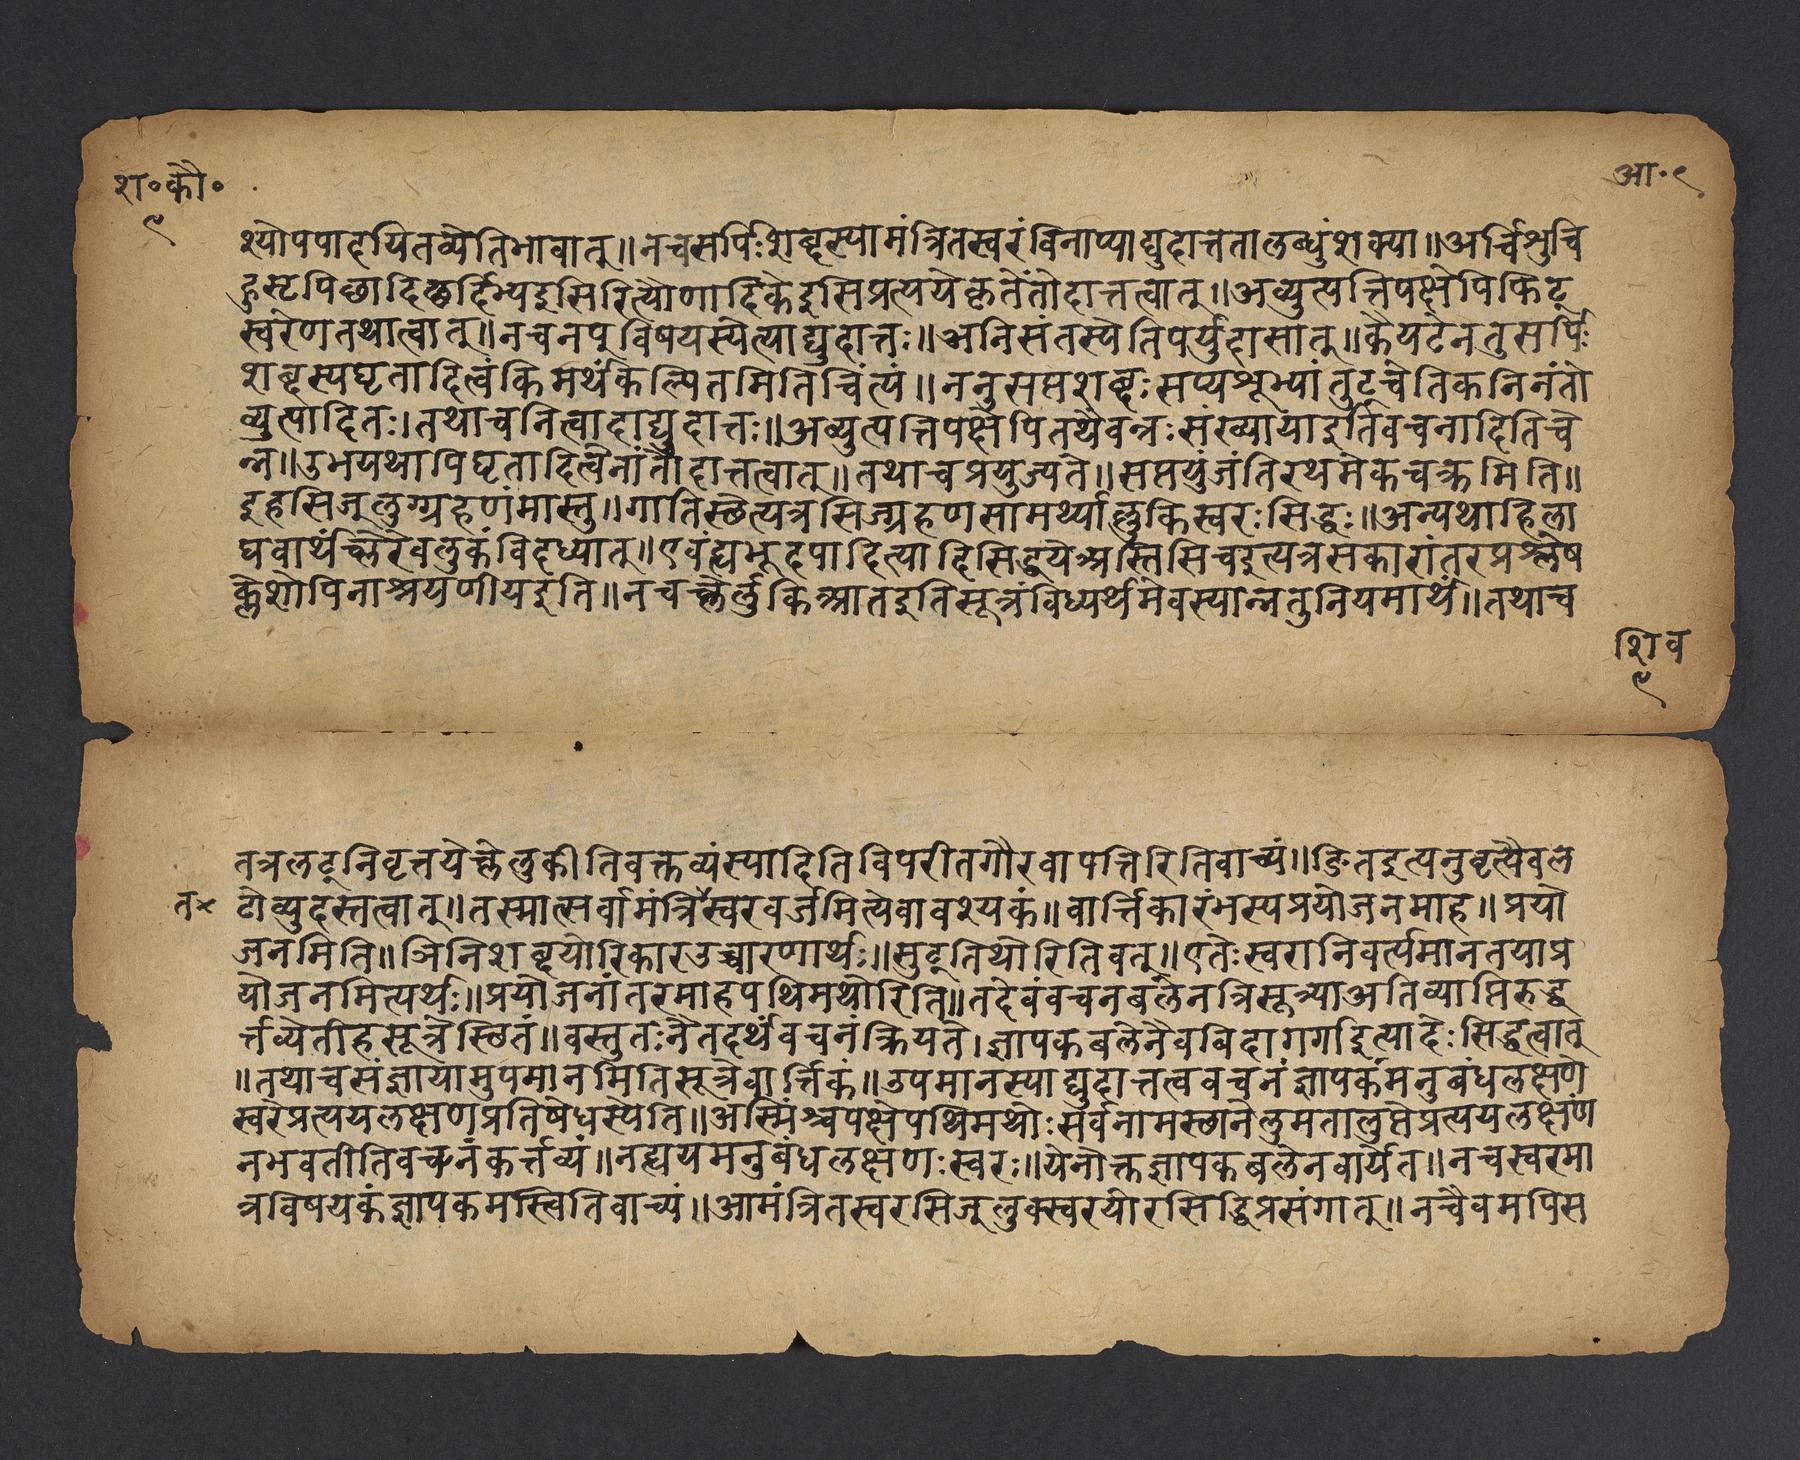 श॰कौ॰
९
आ॰९
श्योपपादयितव्येतिभावात्॥नचसर्पिःशब्दस्यामंत्रितस्वरंविनाप्याद्युदात्ततालब्धुंशक्या॥अर्चिशुचि
हुसृपिछादिछर्दिभ्यइसिरित्यौणादिकेइसिप्रत्ययेकृतेंतोदात्तत्वात्॥अव्युत्पत्तिपक्षेपिफिट्
स्वरेणतथात्वात्॥नचनपुविषयस्येत्याद्युदात्तः॥अनिसंतस्येतिपर्युदासात्॥कैयटेनतुसर्पिः
शब्दस्यघृतादित्वंकिमर्थंकल्पितमितिचिंत्यं॥ननुसप्तशब्दःसप्यशूभ्यांतुट्चेतिकनिनंतो
व्युत्पादितः।तथाचनित्वादाद्युदात्तः॥अव्युत्पत्तिपक्षेपितथैवन्त्रःसंख्यायाइतिवचनादितिचे
न्न॥उभयथापिघृतादित्वेनांतोदात्तत्वात्॥तथाचप्रयुज्यते॥सप्तयुंजंतिरथमेकचक्रमिति॥
इहसिज्लुग्ग्रहणंमास्तु॥गातिस्थेत्यत्रसिज्ग्रहणसामर्थ्याल्लुकिस्वरःसिद्धः॥अन्यथाहिला
घवार्थंच्लेरेवलुकंविदध्यात्॥एवंह्यभूदपादित्यादिसिद्धयेअस्तिसिचइत्यत्रसकारांतरप्रश्लेष
क्लेशोपिनाश्रयणीयइति॥नचच्लेर्लुकिआतइतिसूत्रंविध्यर्थमेवस्यान्नतुनियमार्थं॥तथाच
शिव
९
तत्रलट्निवृत्तयेच्लेलुकीतिवक्तव्यंस्यादितिविपरीतगौरवापत्तिरितिवाच्यं॥ङितइत्यनुवृत्त्यैवल
टोव्युदस्तत्वात्॥तस्मात्सर्वामंत्रिस्वरवर्जमित्येवावश्यकं॥वार्त्तिकारंभस्यप्रयोजनमाह॥प्रयो
त×
जनमिति॥ञिनिशब्दयोरिकारउच्चारणार्थः॥सुट्तिथोरितिवत्॥एतेःस्वरानिवर्त्यमानतयाप्र
योजनमित्यर्थः॥प्रयोजनांतरमाहपथिमथोरिति॥तदेवंवचनबलेनत्रिसूत्र्याअतिव्याप्तिरुद्ध
र्त्तव्येतीहसूत्रेस्थितं॥वस्तुतःनैतदर्थंवचनंक्रियते।ज्ञापकबलेनैवबिदागर्गाइत्यादेःसिद्धत्वात्
॥तथाचसंज्ञायामुपमानमितिसूत्रेवार्त्तिकं॥उपमानस्याद्युदात्तत्ववचनंज्ञापकमनुबंधलक्षणे
स्वरेप्रत्ययलक्षणप्रतिषेधस्येति॥अस्मिंश्चपक्षेपथिमथोःसर्वनामस्थानेलुमतालुप्तेप्रत्ययलक्षणं
नभवतीतिवचनंकर्त्तव्यं॥नह्ययमनुबंधलक्षणःस्वरः॥येनोक्तज्ञापकबलेनवार्येत॥नचस्वरमा
त्रविषयकंज्ञापकमस्त्वितिवाच्यं॥आमंत्रितस्वरसिज्लुक्स्वरयोरसिद्धिप्रसंगात्॥नचैवमपिस